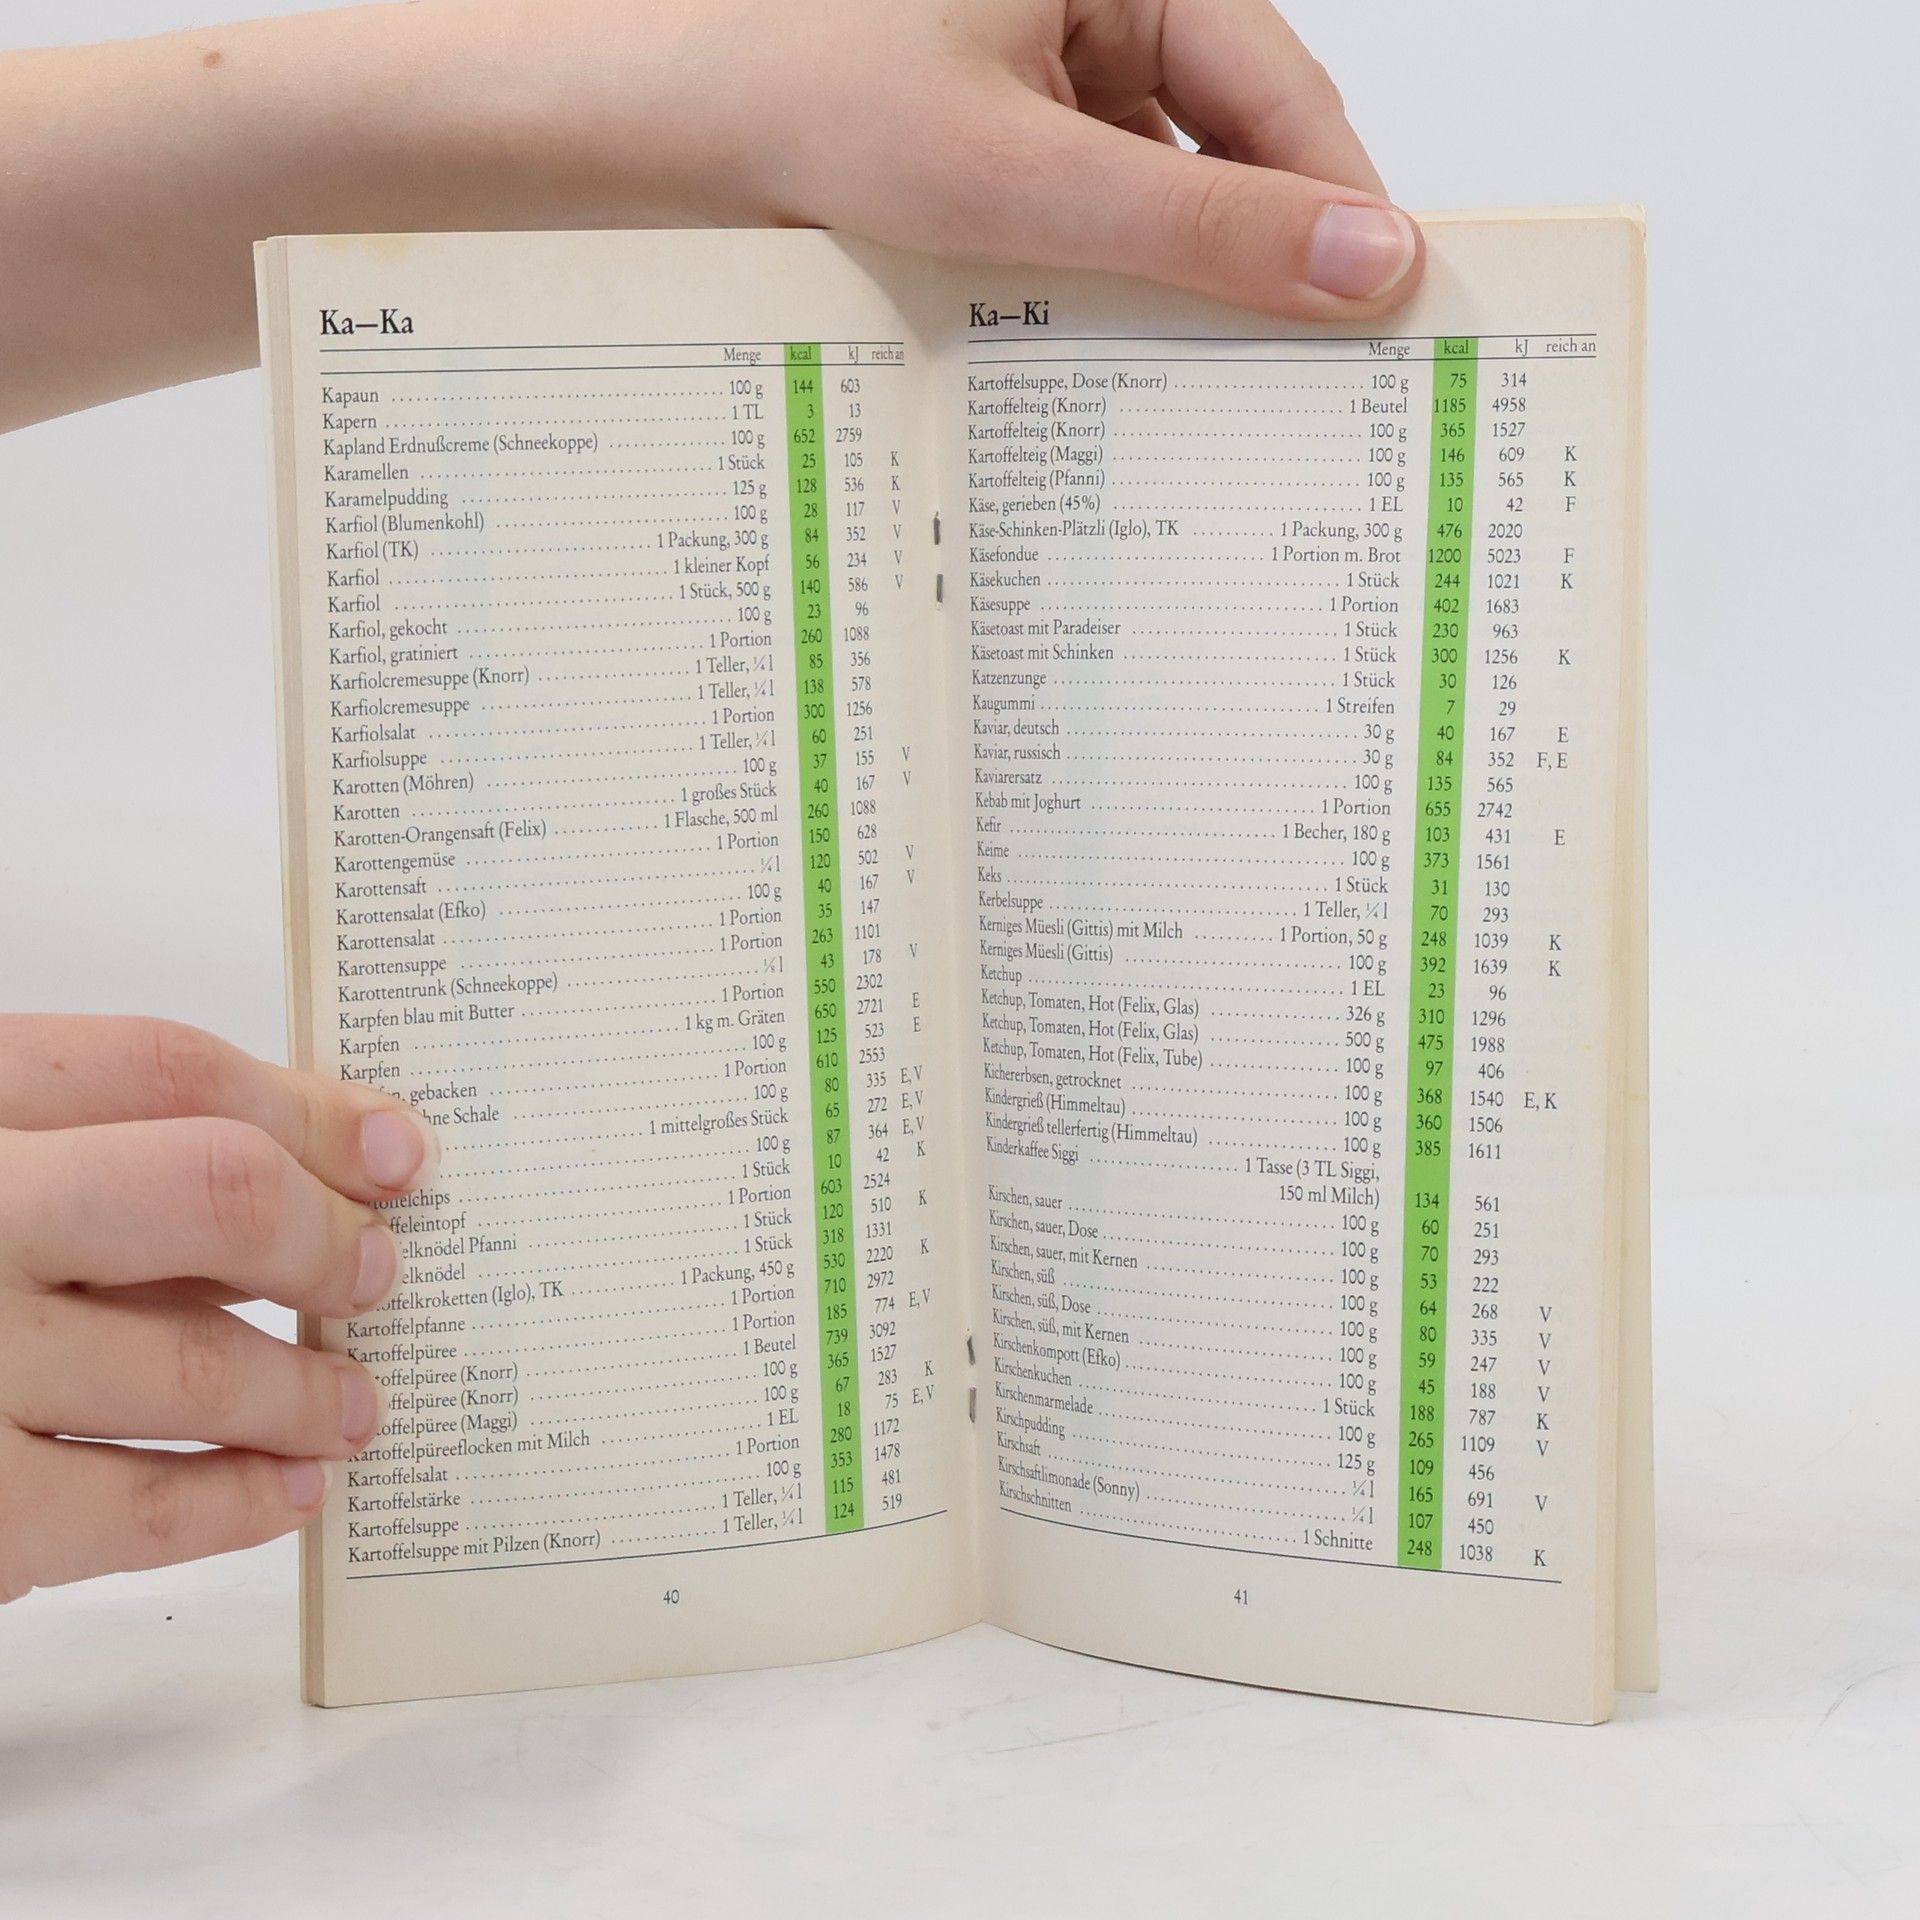 Ka—Ka
Menge kcal kJ reich an
Kapaun 100 g 144 603
Kapern 1 TL 3 13
Kapland Erdnußcreme (Schneekoppe) 100 g 652 2759
Karamellen 1 Stück 25 105 K
Karamelpudding 125 g 128 536 K
Karfiol (Blumenkohl) 100 g 28 117 V
Karfiol (TK) 1 Packung, 300 g 84 352 V
Karfiol 1 kleiner Kopf 56 234 V
Karfiol 1 Stück, 500 g 140 586 V
Karfiol, gekocht 100 g 23 96
Karfiol, gratiniert 1 Portion 260 1088
Karfiolcremesuppe (Knorr) 1 Teller, ¼ l 85 356
Karfiolcremesuppe 1 Teller, ¼ l 138 578
Karfiolsalat 1 Portion 300 1256
Karfiolsuppe 1 Teller, ¼ l 60 251
Karotten (Möhren) 100 g 37 155 V
Karotten 1 großes Stück 40 167 V
Karotten-Orangensaft (Felix) 1 Flasche, 500 ml 260 1088
Karottengemüse 1 Portion 150 628
Karottensaft ¼ l 120 502 V
Karottensalat (Efko) 100 g 40 167 V
Karottensalat 1 Portion 35 147
Karottensuppe 1 Portion 263 1101
Karottentrunk (Schneekoppe) ⅛ l 43 178 V
Karpfen blau mit Butter 1 Portion 550 2302
Karpfen 1 kg m. Gräten 650 2721 E
Karpfen 100 g 125 523 E
gebacken 1 Portion 610 2553
Schale 100 g 80 335 E, V
1 mittelgroßes Stück 65 272 E, V
100 g 87 364 E, V
chips 1 Stück 10 42 K
ffeleintopf 1 Portion 603 2524
elknödel Pfanni 1 Stück 120 510 K
elknödel 1 Stück 318 1331
offelkroketten (Iglo), TK 1 Packung, 450 g 530 2220 K
Kartoffelpfanne 1 Portion 710 2972
Kartoffelpüree 1 Portion 185 774 E, V
toffelpüree (Knorr) 1 Beutel 739 3092
offelpüree (Knorr) 100 g 365 1527
toffelpüree (Maggi) 100 g 67 283 K
Kartoffelpüreeflocken mit Milch 1 EL 18 75 E, V
Kartoffelsalat 1 Portion 280 1172
Kartoffelstärke 100 g 353 1478
Kartoffelsuppe 1 Teller, ¼ l 115 481
Kartoffelsuppe mit Pilzen (Knorr) 1 Teller, ¼ l 124 519
40
Ka—Ki
Menge kcal kJ reich an
Kartoffelsuppe, Dose (Knorr) 100 g 75 314
Kartoffelteig (Knorr) 1 Beutel 1185 4958
Kartoffelteig (Knorr) 100 g 365 1527
Kartoffelteig (Maggi) 100 g 146 609 K
Kartoffelteig (Pfanni) 100 g 135 565 K
Käse, gerieben (45%) 1 EL 10 42 F
Käse-Schinken-Plätzli (Iglo), TK 1 Packung, 300 g 476 2020
Käsefondue 1 Portion m. Brot 1200 5023 F
Käsekuchen 1 Stück 244 1021 K
Käsesuppe 1 Portion 402 1683
Käsetoast mit Paradeiser 1 Stück 230 963
Käsetoast mit Schinken 1 Stück 300 1256 K
Katzenzunge 1 Stück 30 126
Kaugummi 1 Streifen 7 29
Kaviar, deutsch 30 g 40 167 E
Kaviar, russisch 30 g 84 352 F, E
Kaviarersatz 100 g 135 565
Kebab mit Joghurt 1 Portion 655 2742
Kefir 1 Becher, 180 g 103 431 E
Keime 100 g 373 1561
Keks 1 Stück 31 130
Kerbelsuppe 1 Teller, ¼ l 70 293
Kerniges Müesli (Gittis) mit Milch 1 Portion, 50 g 248 1039 K
Kerniges Müesli (Gittis) 100 g 392 1639 K
Ketchup 1 EL 23 96
Ketchup, Tomaten, Hot (Felix, Glas) 326 g 310 1296
Ketchup, Tomaten, Hot (Felix, Glas) 500 g 475 1988
Ketchup, Tomaten, Hot (Felix, Tube) 100 g 97 406
Kichererbsen, getrocknet 100 g 368 1540 E, K
Kindergrieß (Himmeltau) 100 g 360 1506
Kindergrieß tellerfertig (Himmeltau) 100 g 385 1611
Kinderkaffee Siggi 1 Tasse (3 TL Siggi,
150 ml Milch) 134 561
Kirschen, sauer 100 g 60 251
Kirschen, sauer, Dose 100 g 70 293
Kirschen, sauer, mit Kernen 100 g 53 222
Kirschen, süß 100 g 64 268 V
Kirschen, süß, Dose 100 g 80 335 V
Kirschen, süß, mit Kernen 100 g 59 247 V
Kirschenkompott (Efko) 100 g 45 188 V
Kirschenkuchen 1 Stück 188 787 K
Kirschenmarmelade 100 g 265 1109 V
Kirschpudding 125 g 109 456
Kirschsaft ¼ l 165 691 V
Kirschsaftlimonade (Sonny) ¼ l 107 450
Kirschschnitten 1 Schnitte 248 1038 K
41